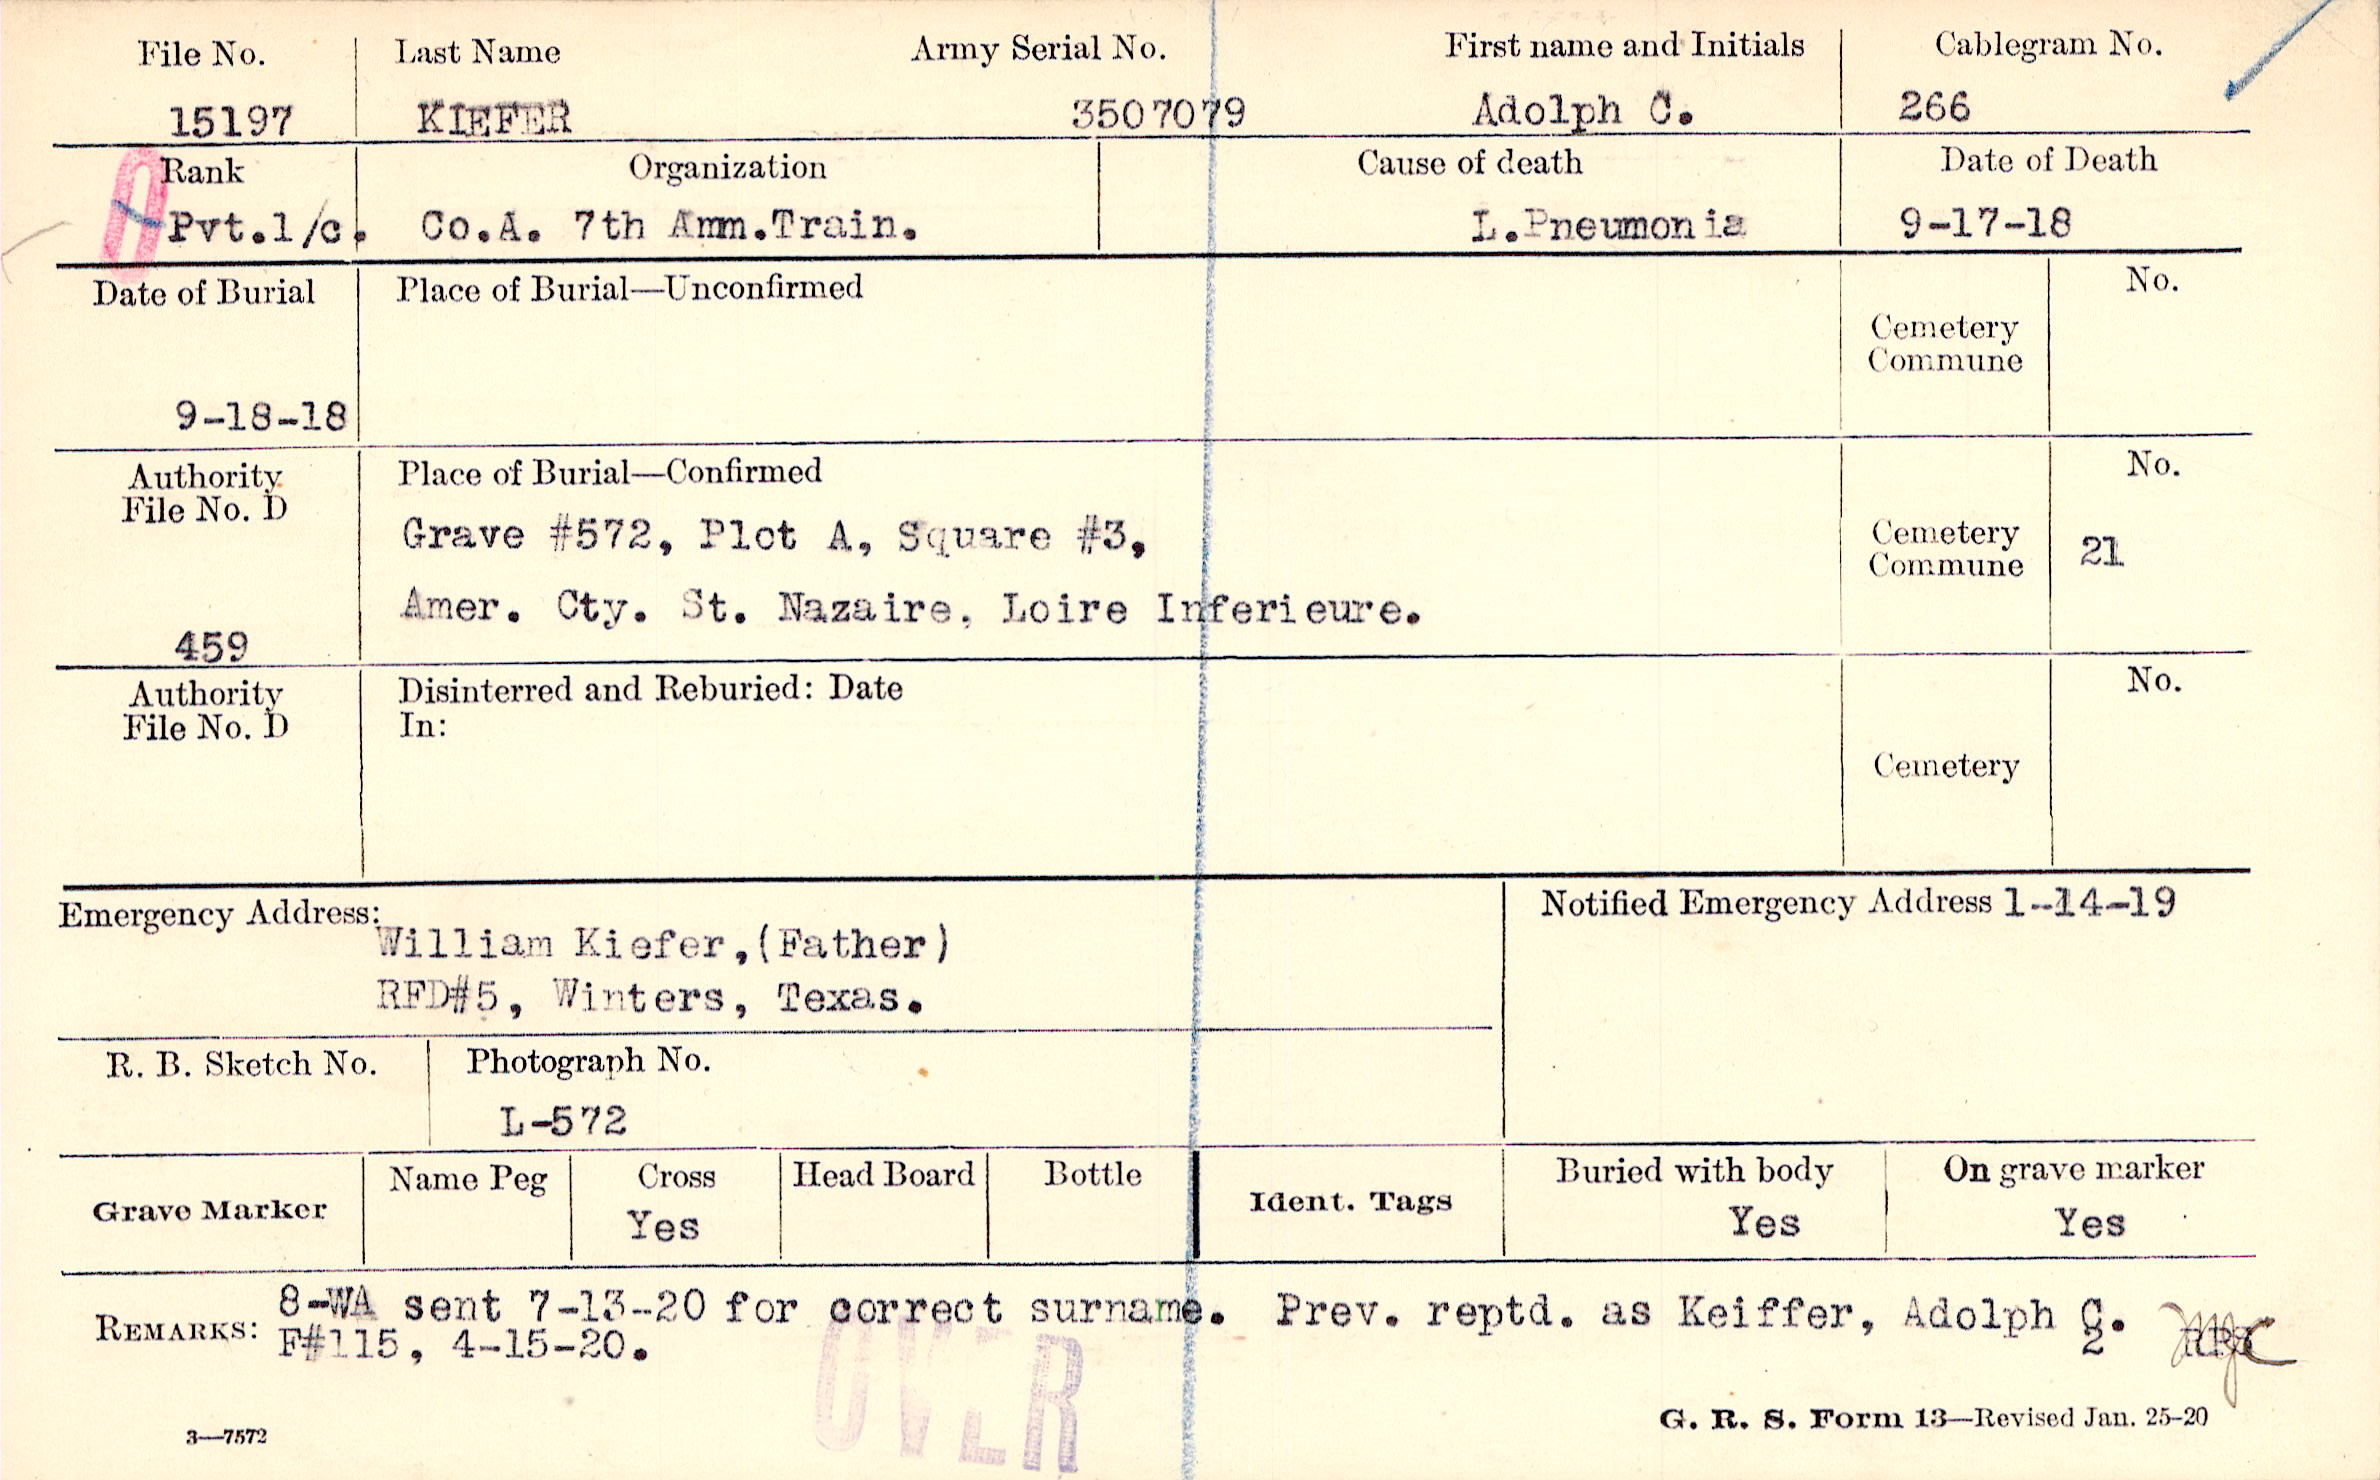 File No. Last Name Army Serial No. First name and Initials Cablegram No.
15197 KIEFER 3507079 Adolph C. 266
Rank Organization Cause of death Date of Death
Pvt.1/c. Co.A. 7th Amm.Train. L.Pneumonia 9-17-18
Date of Burial Place of Burial—Unconfirmed No.
Cemetery
Commune
9-18-18
Authority Place of Burial—Confirmed No.
File No. D
Grave #572, Plot A, Square #3, Cemetery
Commune 21
Amer. Cty. St. Nazaire, Loire Inferieure.
459
Authority Disinterred and Reburied: Date No.
File No. D In:
Cemetery
Emergency Address: Notified Emergency Address 1-14-19
William Kiefer,(Father)
RFD#5, Winters, Texas.
R. B. Sketch No. Photograph No.
L-572
Grave Marker Name Peg Cross Head Board Bottle Ident. Tags Buried with body On grave marker
Yes Yes Yes
REMARKS: 8-WA sent 7-13-20 for correct surname. Prev. reptd. as Keiffer, Adolph C.
F#115, 4-15-20. 2
OVER
G. R. S. Form 13—Revised Jan. 25-20
3—7572